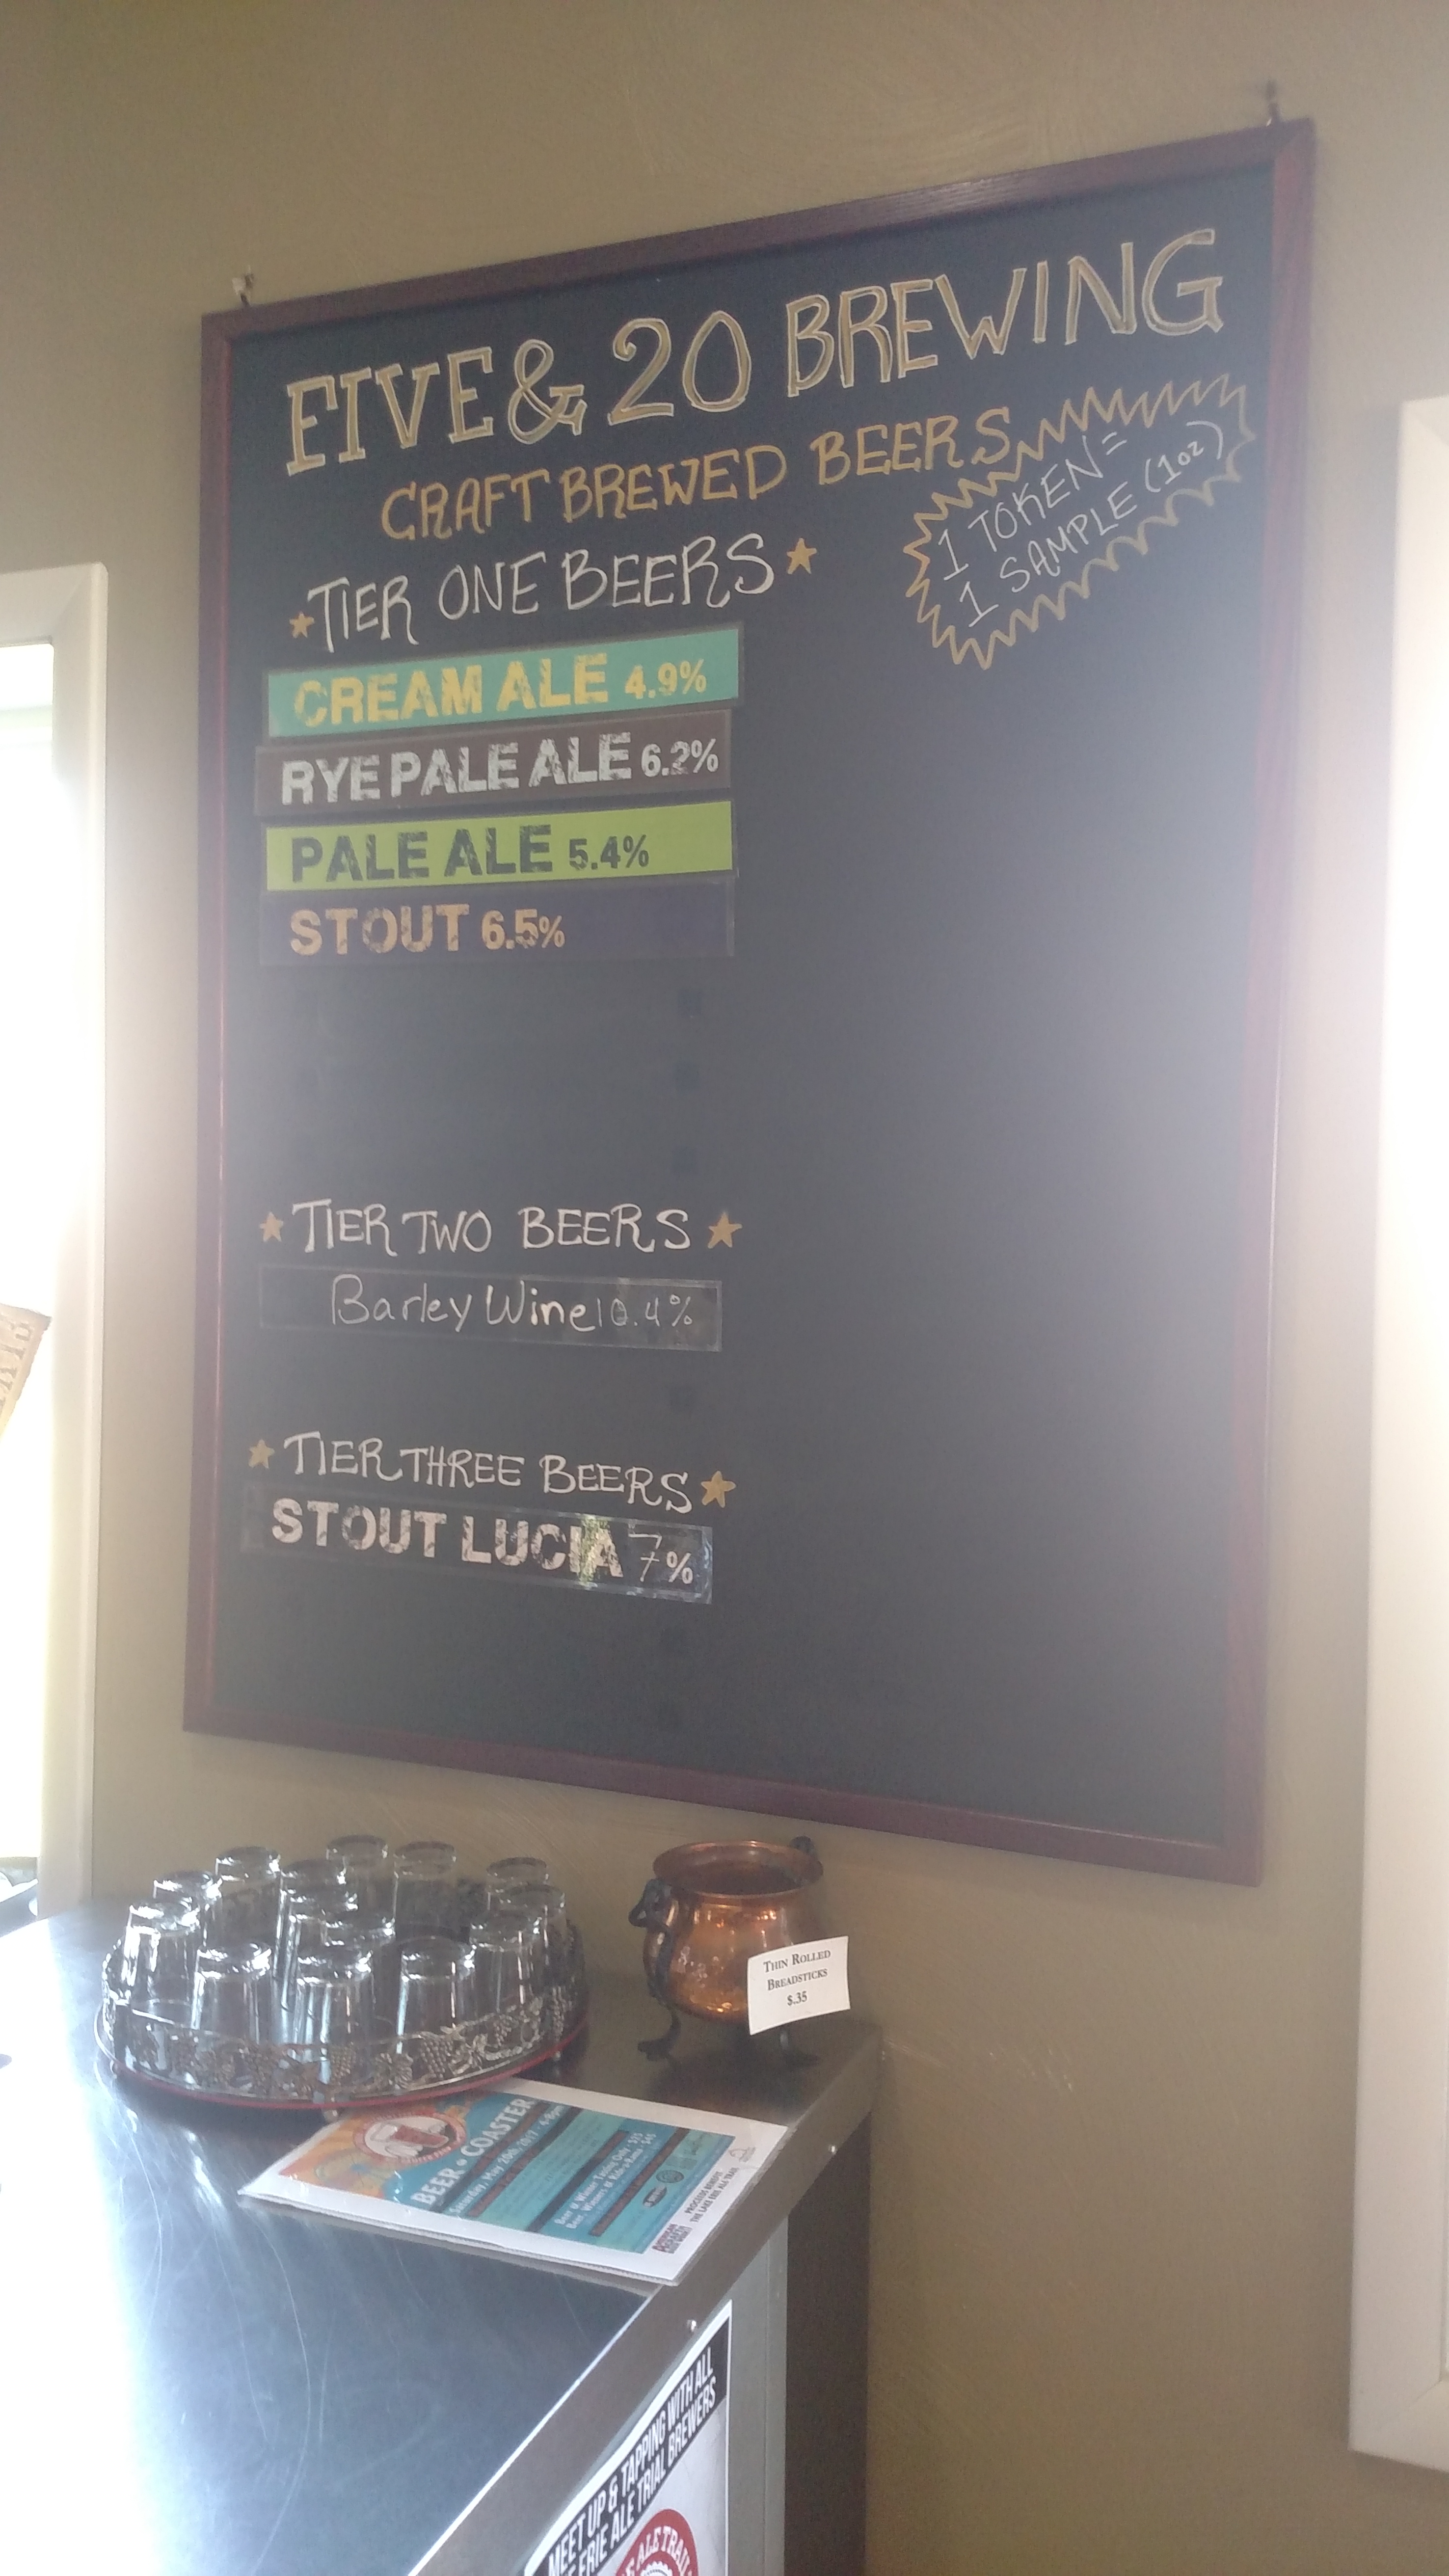 FIVE & 20 BREWING
CRAFT BREWED BEERS
1 TOKEN =
1 SAMPLE (1oz)
TIER ONE BEERS
CREAM ALE 4.9%
RYE PALE ALE 6.2%
PALE ALE 5.4%
STOUT 6.5%
TIER TWO BEERS
Barley Wine 10.4%
TIER THREE BEERS
STOUT LUCIA 7%
THIN ROLLED
BREADSTICKS
$.35
BEER COASTER
Saturday, May 20th, 2017
PROCEEDS BENEFIT
THE LAKE ERIE ALE TRAIL
MEET UP & TAPPING WITH ALL
ERIE ALE TRIAL BREWERS
ALE TRAIL